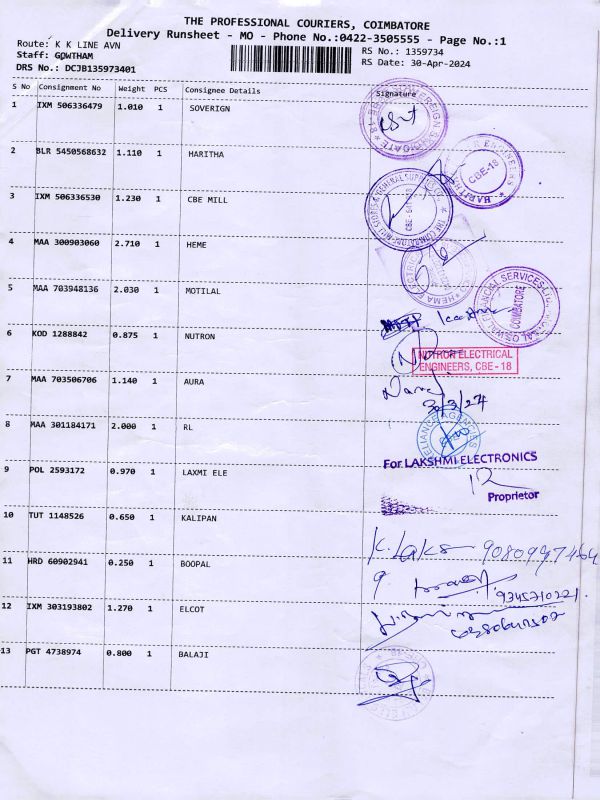 THE PROFESSIONAL COURIERS, COIMBATORE
Delivery Runsheet - MO - Phone No.:0422-3505555 - Page No.:1
Route: K K LINE AVN
Staff: GOWTHAM
DRS No.: DCJB135973401
RS No.: 1359734
RS Date: 30-Apr-2024
S No Consignment No Weight PCS Consignee Details Signature
1 IXM 506336479 1.010 1 SOVERIGN
2 BLR 5450568632 1.110 1 HARITHA
CBE-18
3 IXM 506336530 1.230 1 CBE MILL
4 MAA 300903060 2.710 1 HEME
5 MAA 703948136 2.030 1 MOTILAL
COIMBATORE
6 KOD 1288842 0.875 1 NUTRON
NUTRON ELECTRICAL
ENGINEERS, CBE - 18
7 MAA 703506706 1.140 1 AURA
8 MAA 301184171 2.000 1 RL
RELIANCE AGENCIES
For LAKSHMI ELECTRONICS
9 POL 2593172 0.970 1 LAXMI ELE
Proprietor
10 TUT 1148526 0.650 1 KALIPAN
11 HRD 60902941 0.250 1 BOOPAL
9345710221
12 IXM 303193802 1.270 1 ELCOT
13 PGT 4738974 0.800 1 BALAJI